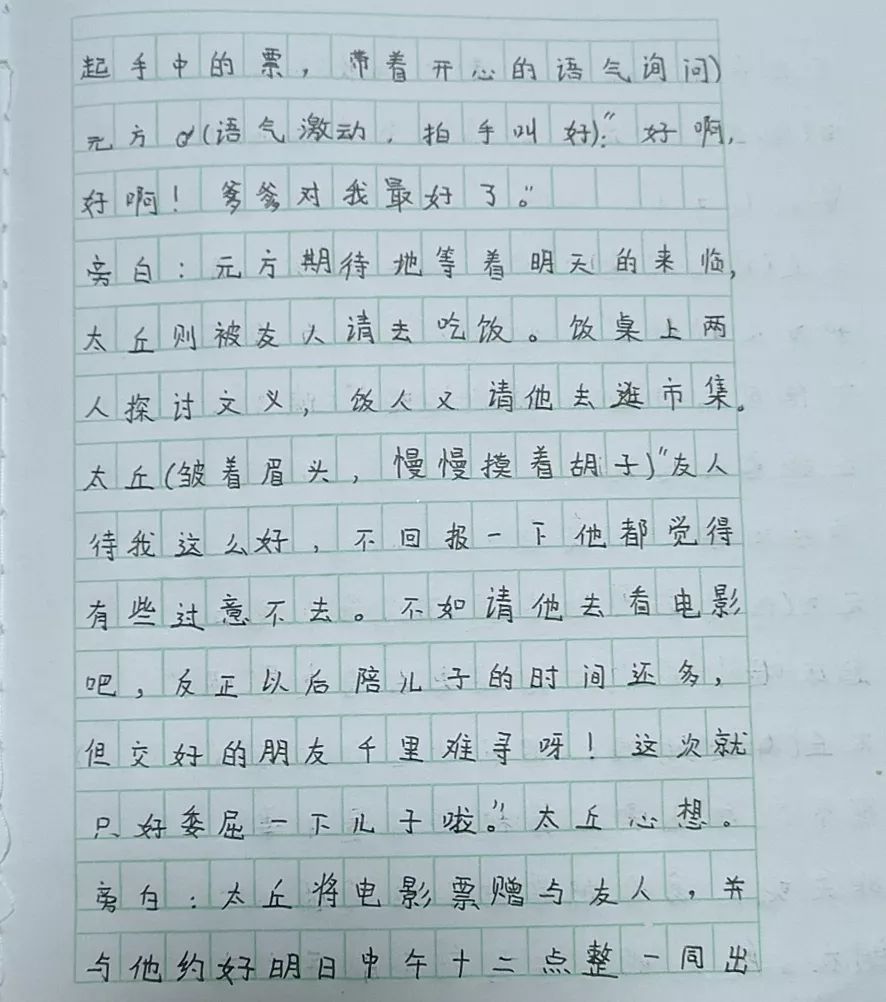 起手中的票，带着开心的语气询问)
元方(语气激动，拍手叫好)：“好啊，
好啊！爹爹对我最好了。”
旁白：元方期待地等着明天的来临，
太丘则被友人请去吃饭。饭桌上两
人探讨文义，饭人又请他去逛市集。
太丘(皱着眉头，慢慢摸着胡子)“友人
待我这么好，不回报一下他都觉得
有些过意不去。不如请他去看电影
吧，反正以后陪儿子的时间还多，
但交好的朋友千里难寻呀！这次就
只好委屈一下儿子啦。”太丘心想。
旁白：太丘将电影票赠与友人，并
与他约好明日中午十二点整一同出